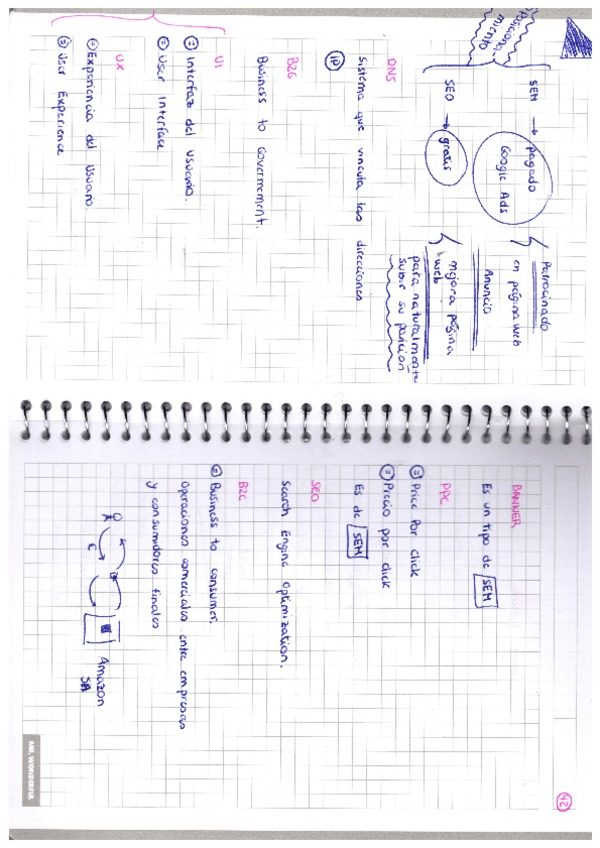 Posiciona-
miento
SEM → pagado
Google Ads
Patrocinado
en página web
Anuncio
SEO → gratis
mejora página
web
para naturalmente
subir su posición
DNS
Sistema que vincula las direcciones
IP
B2G
Business to Government.
UI
= Interfaz del usuario.
= User Interface
UX
= Experiencia del Usuario.
= User Experience
42
BANNER
Es un tipo de SEM
PPC
= Price Por click
= Precio por click
Es de SEM
SEO
Search Engine Optimization.
B2C
= Business to consumer.
Operaciones comerciales entre empresas
y consumidores finales
€
Amazon
SA
MR. WONDERFUL